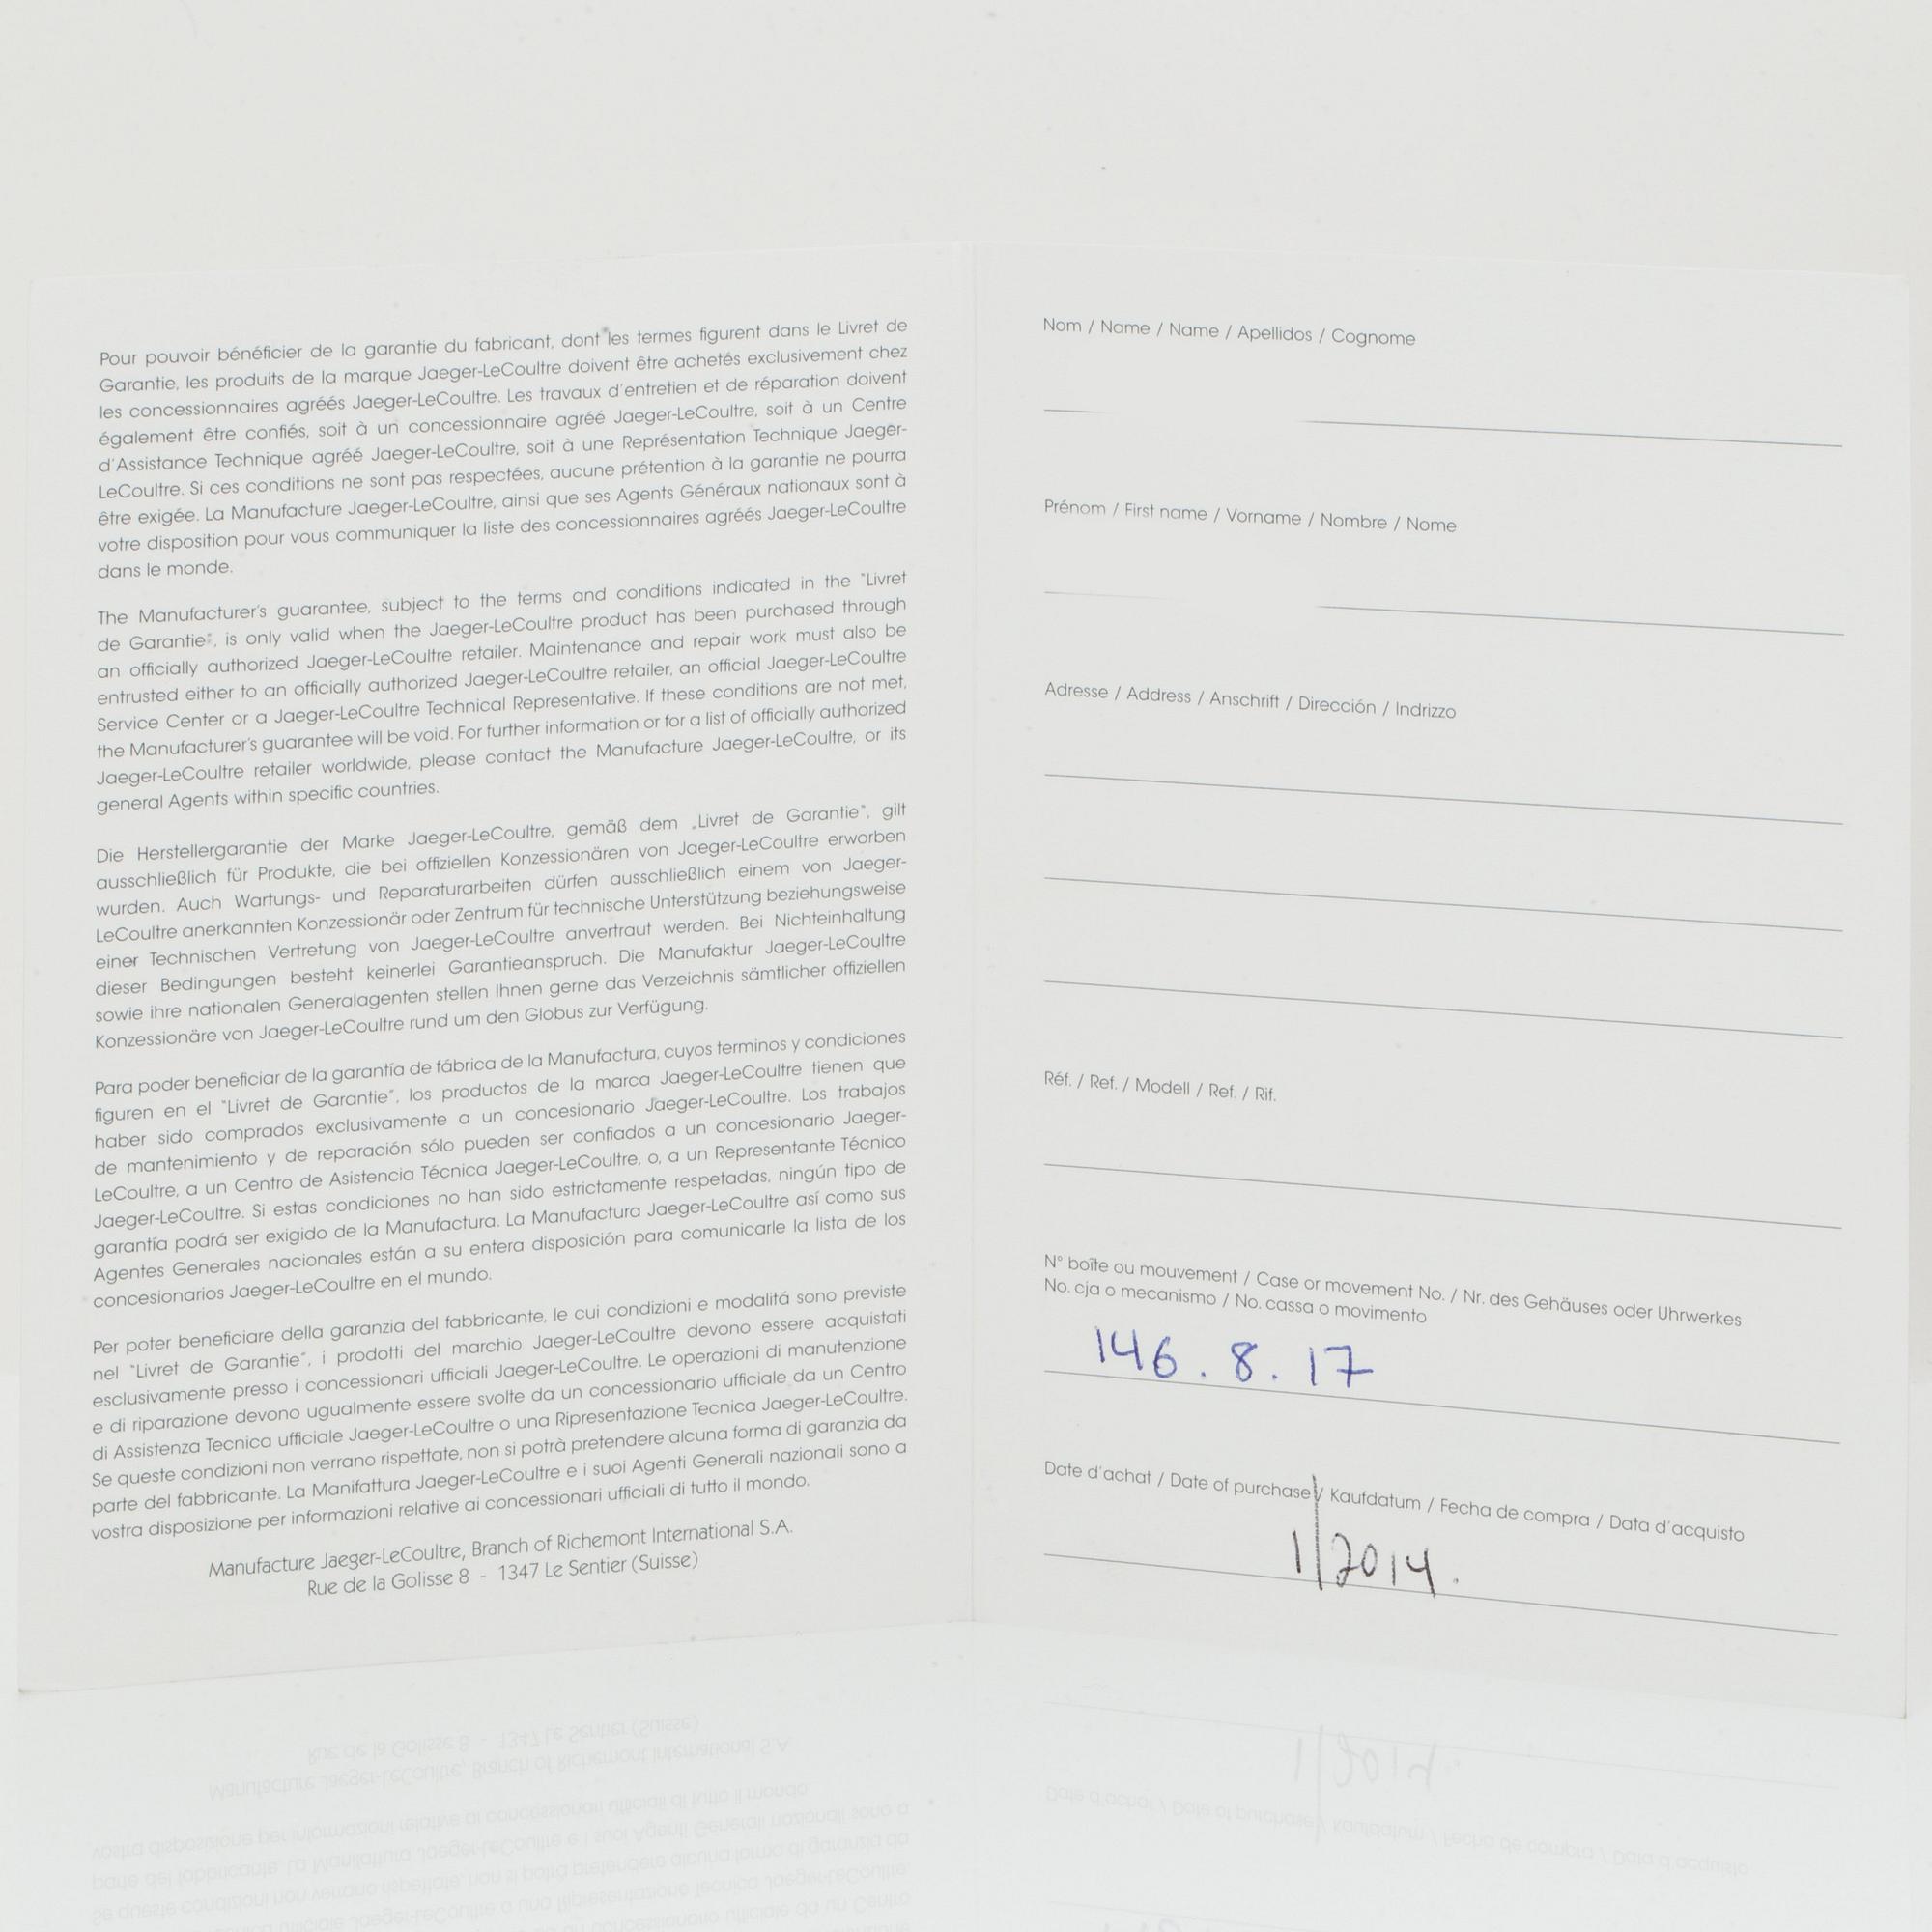 Pour pouvoir bénéficier de la garantie du fabricant, dont les termes figurent dans le Livret de
Garantie, les produits de la marque Jaeger-LeCoultre doivent être achetés exclusivement chez
les concessionnaires agréés Jaeger-LeCoultre. Les travaux d'entretien et de réparation doivent
également être confiés, soit à un concessionnaire agréé Jaeger-LeCoultre, soit à un Centre
d'Assistance Technique agréé Jaeger-LeCoultre, soit à une Représentation Technique Jaeger-
LeCoultre. Si ces conditions ne sont pas respectées, aucune prétention à la garantie ne pourra
être exigée. La Manufacture Jaeger-LeCoultre, ainsi que ses Agents Généraux nationaux sont à
votre disposition pour vous communiquer la liste des concessionnaires agréés Jaeger-LeCoultre
dans le monde.
The Manufacturer's guarantee, subject to the terms and conditions indicated in the "Livret
de Garantie", is only valid when the Jaeger-LeCoultre product has been purchased through
an officially authorized Jaeger-LeCoultre retailer. Maintenance and repair work must also be
entrusted either to an officially authorized Jaeger-LeCoultre retailer, an official Jaeger-LeCoultre
Service Center or a Jaeger-LeCoultre Technical Representative. If these conditions are not met,
the Manufacturer's guarantee will be void. For further information or for a list of officially authorized
Jaeger-LeCoultre retailer worldwide, please contact the Manufacture Jaeger-LeCoultre, or its
general Agents within specific countries.
Die Herstellergarantie der Marke Jaeger-LeCoultre, gemäß dem „Livret de Garantie", gilt
ausschließlich für Produkte, die bei offiziellen Konzessionären von Jaeger-LeCoultre erworben
wurden. Auch Wartungs- und Reparaturarbeiten dürfen ausschließlich einem von Jaeger-
LeCoultre anerkannten Konzessionär oder Zentrum für technische Unterstützung beziehungsweise
einer Technischen Vertretung von Jaeger-LeCoultre anvertraut werden. Bei Nichteinhaltung
dieser Bedingungen besteht keinerlei Garantieanspruch. Die Manufaktur Jaeger-LeCoultre
sowie ihre nationalen Generalagenten stellen Ihnen gerne das Verzeichnis sämtlicher offiziellen
Konzessionäre von Jaeger-LeCoultre rund um den Globus zur Verfügung.
Para poder beneficiar de la garantía de fábrica de la Manufactura, cuyos terminos y condiciones
figuren en el "Livret de Garantie", los productos de la marca Jaeger-LeCoultre tienen que
haber sido comprados exclusivamente a un concesionario Jaeger-LeCoultre. Los trabajos
de mantenimiento y de reparación sólo pueden ser confiados a un concesionario Jaeger-
LeCoultre, a un Centro de Asistencia Técnica Jaeger-LeCoultre, o, a un Representante Técnico
Jaeger-LeCoultre. Si estas condiciones no han sido estrictamente respetadas, ningún tipo de
garantía podrá ser exigido de la Manufactura. La Manufactura Jaeger-LeCoultre así como sus
Agentes Generales nacionales están a su entera disposición para comunicarle la lista de los
concesionarios Jaeger-LeCoultre en el mundo.
Per poter beneficiare della garanzia del fabbricante, le cui condizioni e modalitá sono previste
nel "Livret de Garantie", i prodotti del marchio Jaeger-LeCoultre devono essere acquistati
esclusivamente presso i concessionari ufficiali Jaeger-LeCoultre. Le operazioni di manutenzione
e di riparazione devono ugualmente essere svolte da un concessionario ufficiale da un Centro
di Assistenza Tecnica ufficiale Jaeger-LeCoultre o una Ripresentazione Tecnica Jaeger-LeCoultre.
Se queste condizioni non verrano rispettate, non si potrà pretendere alcuna forma di garanzia da
parte del fabbricante. La Manifattura Jaeger-LeCoultre e i suoi Agenti Generali nazionali sono a
vostra disposizione per informazioni relative ai concessionari ufficiali di tutto il mondo.
Manufacture Jaeger-LeCoultre, Branch of Richemont International S.A.
Rue de la Golisse 8 - 1347 Le Sentier (Suisse)
Nom / Name / Name / Apellidos / Cognome
Prénom / First name / Vorname / Nombre / Nome
Adresse / Address / Anschrift / Dirección / Indrizzo
Réf. / Ref. / Modell / Ref. / Rif.
N° boîte ou mouvement / Case or movement No. / Nr. des Gehäuses oder Uhrwerkes
No. cja o mecanismo / No. cassa o movimento
146.8.17
Date d'achat / Date of purchase / Kaufdatum / Fecha de compra / Data d'acquisto
1/2014.